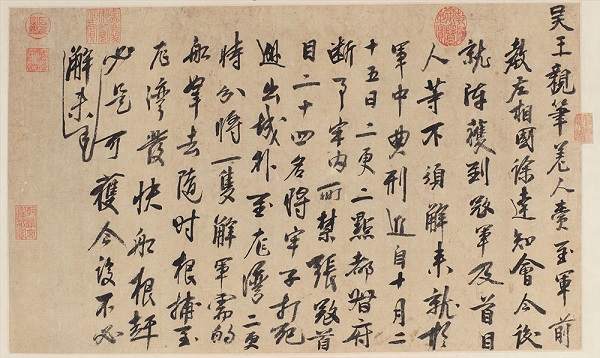 吳王親筆差人賫至軍前
教左相國徐達知會今後
就陣獲到寇軍及首目
人等不須解來就於
軍中典刑近自十月二
十五日二更二點都督府
斷事牢內所禁張寇首
目二十四名將牢子打死
逃出城外至龍灣二更
時分將一隻解軍需的
船拏去隨時根捕至
龍灣發快船根趕
必是可獲今後不必
解來也